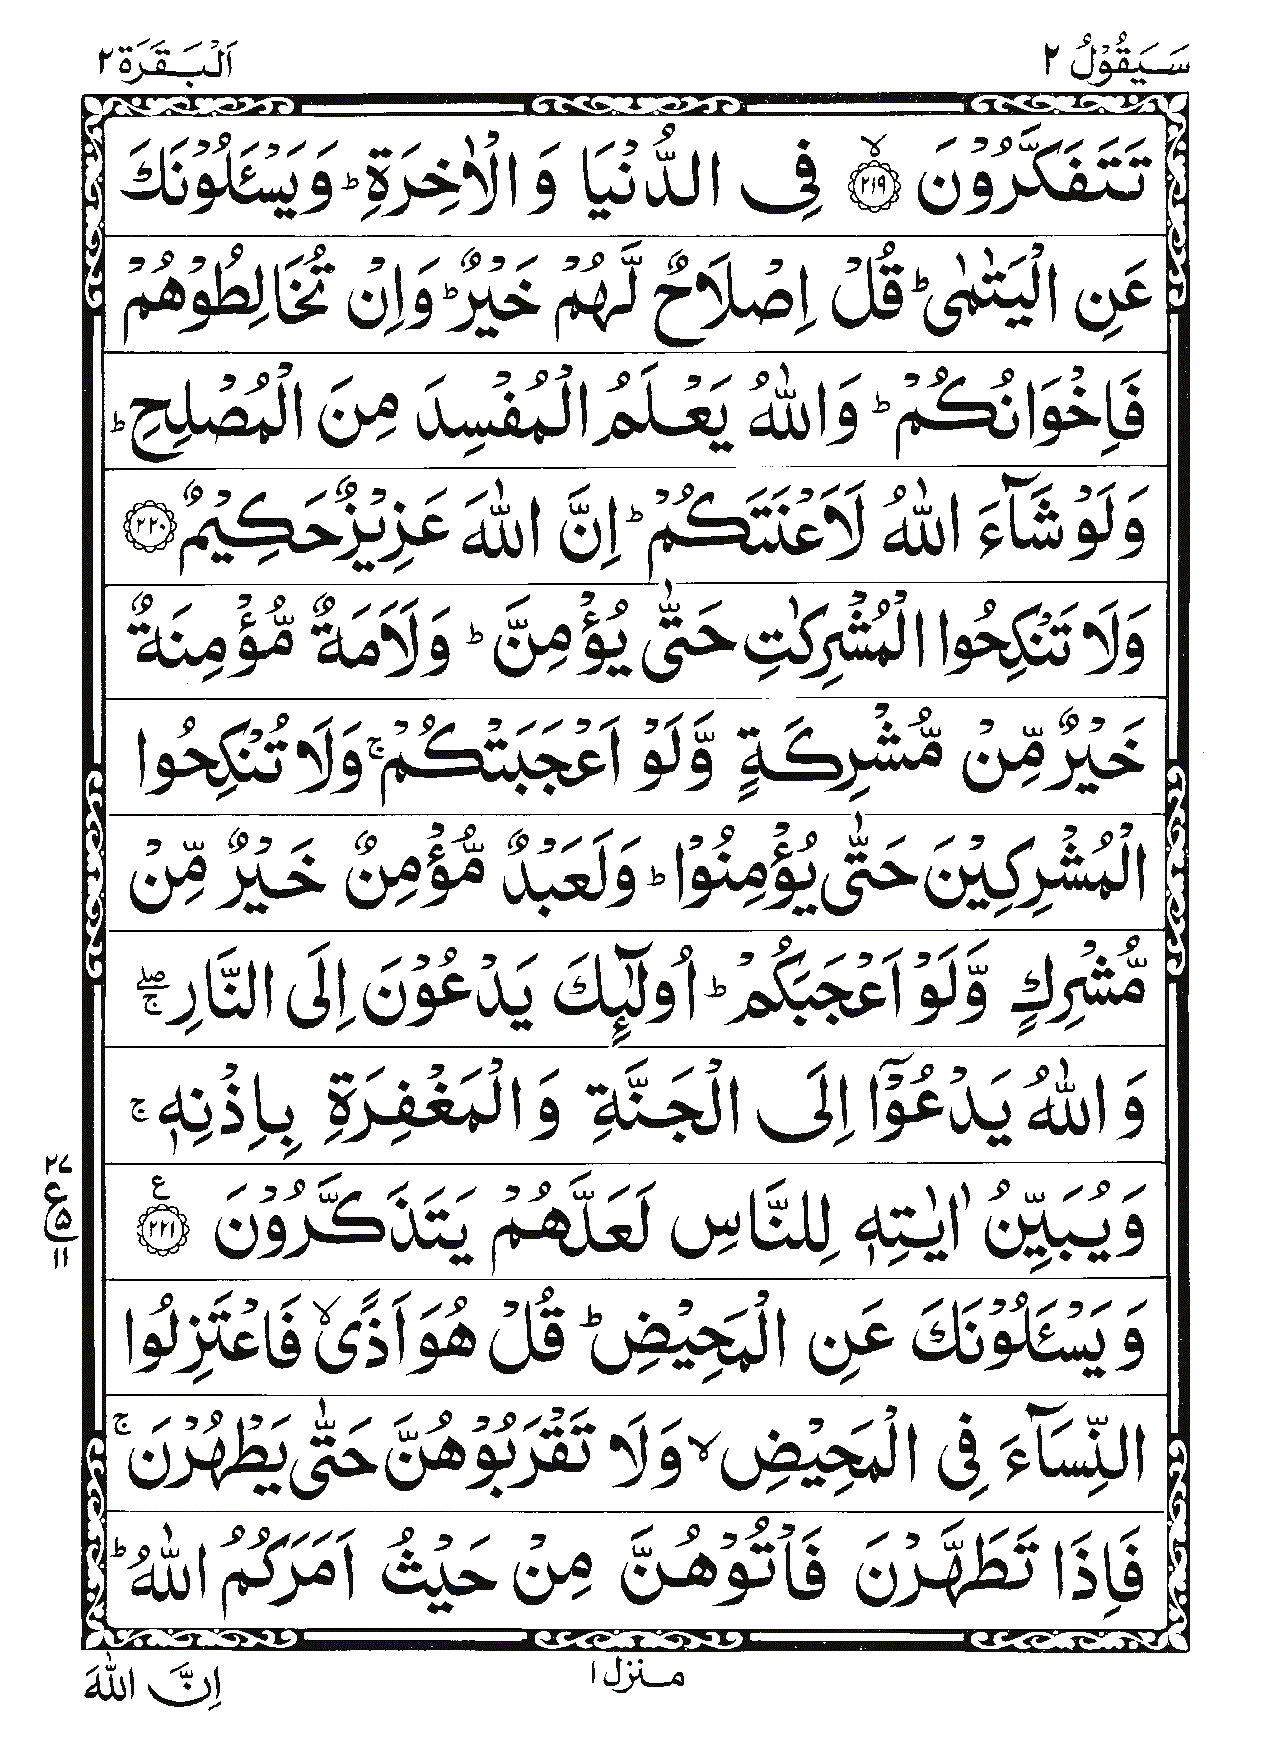 سَيَقُوْلُ ٢
اَلْبَقَرَة ٢
تَتَفَكَّرُوْنَ ۙ‏﴿٢١٩﴾ فِى الدُّنْيَا وَ الْاٰخِرَةِ ؕ وَيَسْــَٔلُوْنَكَ
عَنِ الْيَتٰمٰى ؕ قُلْ اِصْلَاحٌ لَّهُمْ خَيْرٌ ؕ وَاِنْ تُخَالِطُوْهُمْ
فَاِخْوَانُكُمْ ؕ وَاللّٰهُ يَعْلَمُ الْمُفْسِدَ مِنَ الْمُصْلِحِ ؕ
وَلَوْ شَآءَ اللّٰهُ لَاَعْنَتَكُمْ ؕ اِنَّ اللّٰهَ عَزِيْزٌ حَكِيْمٌ ﴿٢٢٠﴾
وَلَا تَنْكِحُوا الْمُشْرِكٰتِ حَتّٰى يُؤْمِنَّ ؕ وَلَاَمَةٌ مُّؤْمِنَةٌ
خَيْرٌ مِّنْ مُّشْرِكَةٍ وَّلَوْ اَعْجَبَتْكُمْ ۚ وَلَا تُنْكِحُوا
الْمُشْرِكِيْنَ حَتّٰى يُؤْمِنُوْا ؕ وَلَعَبْدٌ مُّؤْمِنٌ خَيْرٌ مِّنْ
مُّشْرِكٍ وَّلَوْ اَعْجَبَكُمْ ؕ اُولٰٓئِكَ يَدْعُوْنَ اِلَى النَّارِ ۖۚ
وَ اللّٰهُ يَدْعُوْٓا اِلَى الْجَنَّةِ وَ الْمَغْفِرَةِ بِاِذْنِهٖ ۚ
وَيُبَيِّنُ اٰيٰتِهٖ لِلنَّاسِ لَعَلَّهُمْ يَتَذَكَّرُوْنَ ﴿٢٢١﴾ ع
٢٧
ع ۵
١١
وَ يَسْــَٔلُوْنَكَ عَنِ الْمَحِيْضِ ؕ قُلْ هُوَ اَذًى ۙ فَاعْتَزِلُوا
النِّسَآءَ فِى الْمَحِيْضِ ۙ وَلَا تَقْرَبُوْهُنَّ حَتّٰى يَطْهُرْنَ ۚ
فَاِذَا تَطَهَّرْنَ فَاْتُوْهُنَّ مِنْ حَيْثُ اَمَرَكُمُ اللّٰهُ ؕ
منزل ١
اِنَّ اللّٰهَ